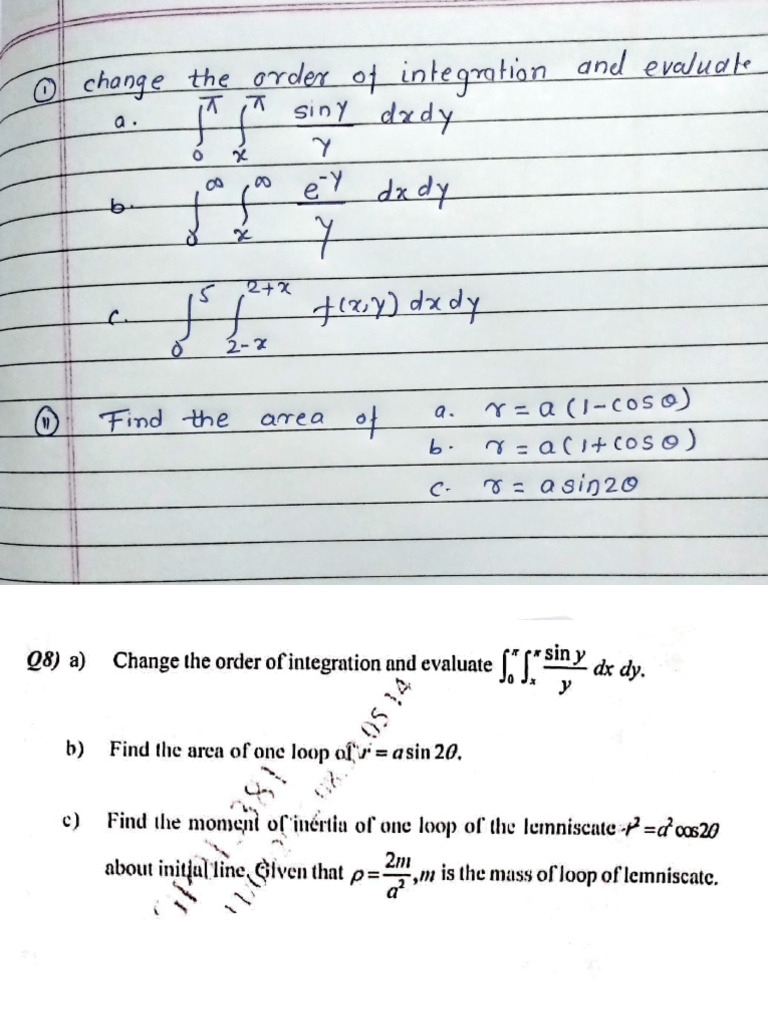 ① change the order of integration and evaluate
a. ∫₀^π ∫ₓ^π sin y / y dx dy
b. ∫₀^∞ ∫ₓ^∞ e^-y / y dx dy
c. ∫₀^5 ∫_{2-x}^{2+x} f(x,y) dx dy
⑪ Find the area of a. r = a (1-cos θ)
b. r = a(1+cos θ)
c. r = a sin2θ
Q8) a) Change the order of integration and evaluate ∫₀^π ∫ₓ^π sin y / y dx dy.
b) Find the area of one loop of r = a sin 2θ.
c) Find the moment of inertia of one loop of the lemniscate r² = a² cos2θ
about initial line. Given that ρ = 2m / a², m is the mass of loop of lemniscate.